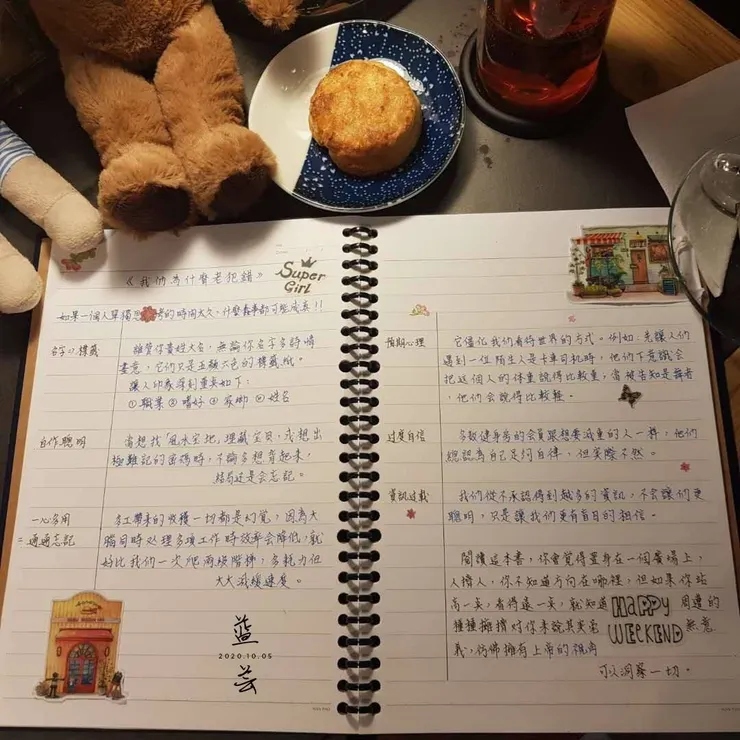 《我們為什麼老犯錯》
Super
Girl
如果一個人單獨思考的時間太久,什麼蠢事都可能成真!!
名字の標籤
儘管你貴姓大名,無論你名字多詩情
畫意,它們只是五顏六色的標籤紙。
讓人印象深刻重要如下:
①職業 ②嗜好 ③家鄉 ④姓名
自作聰明
當想找「風水宝地」埋藏宝貝,或想出
極難記的密碼時,不論多想背起來,
結局还是会忘記。
一心多用
=通通忘記
多工帶來的收穫一切都是幻覺,因為大
腦同時処理多項工作時效率会降低,就
好比我們一次爬兩級階梯,多耗力但
大大減緩速度。
藍
2020.10.05
芸
預期心理
它僵化我們看待世界的方式。例如:先讓人們
遇到一位陌生人是卡車司机時,他们下意識会
把這個人的体重說得比較重,當被告知是舞者
,他们会說得比較輕。
过度自信
多数健身房的会員跟想要減重的人一群,他們
總認為自己足夠自律,但实際不然。
資訊过載
我們從不承認得到越多的資訊,不会讓们更
聰明,只是讓我們更有盲目的相信。
閱讀這本書,你會覚得置身在一個廣場上,
人擠人,你不知道方向在哪裡,但如果你站
高一点,看得遠一点,就知道 周遭的
HAPPY
種種擁擠对你来說其实毫 無意
WEEKEND
義,彷彿擁有上帝的視角
可以洞察一切。